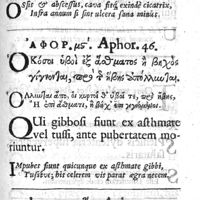 Ossis & abscessus, cava fiet, exinde cicatrix,
Infra annum si sint ulcera sana minus.
ΑΦΟΡ. μϛ'. Aphor. 46.
Ὁκόσοι ὑβοὶ ἐξ ἄσθματος ἢ βηχὸς
γίγνονται, πρὸ τῆς ἥβης ἀπόλλυνται.
Qui gibbosi fiunt ex asthmate
vel tussi, ante pubertatem mo-
riuntur.
Impubes fiunt quicunque ex asthmate gibbi,
Tussive; his celerem vis parat ægra necem.